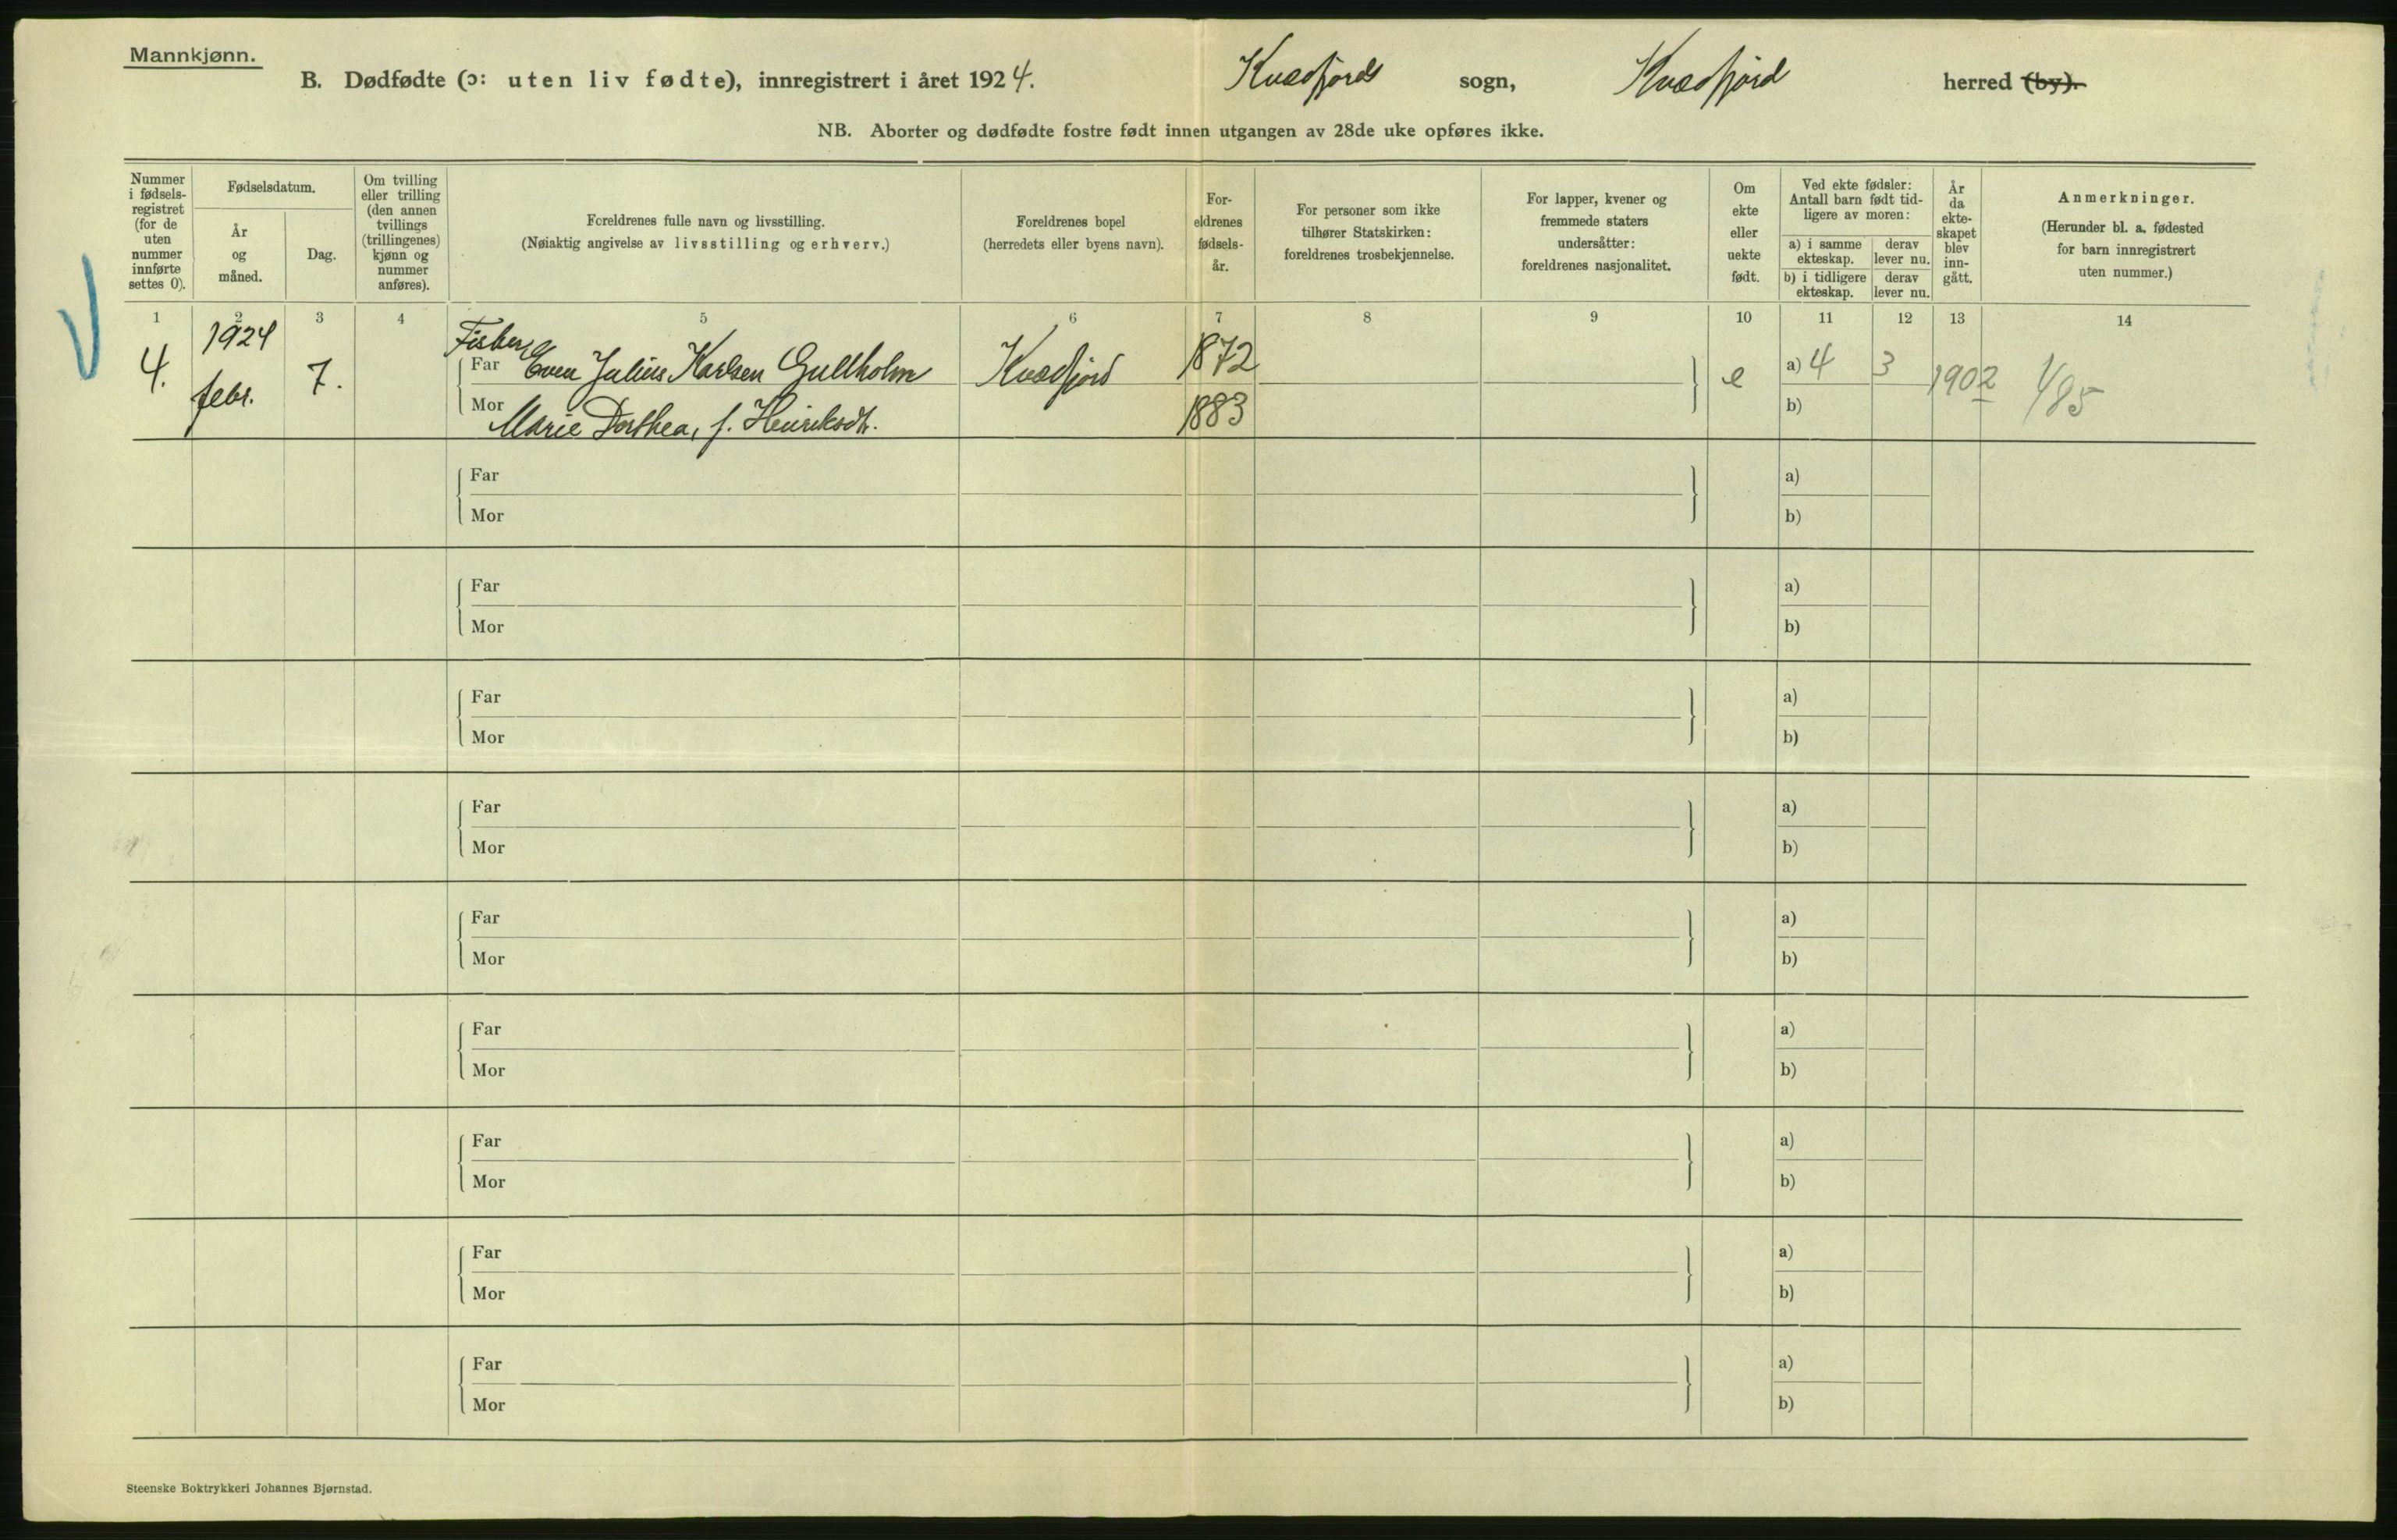 Mannkjønn.
B. Dødfødte (ɔ: uten liv fødte), innregistrert i året 1924. Kvædfjords sogn, Kvædfjord herred (by).
NB. Aborter og dødfødte fostre født innen utgangen av 28de uke opføres ikke.
Nummer i fødsels-registret (for de uten nummer innførte settes 0).
Fødselsdatum.
År og måned.
Dag.
Om tvilling eller trilling (den annen tvillings (trillingenes) kjønn og nummer anføres).
Foreldrenes fulle navn og livsstilling.
(Nøiaktig angivelse av livsstilling og erhverv.)
Foreldrenes bopel
(herredets eller byens navn).
For-eldrenes fødsels-år.
For personer som ikke tilhører Statskirken: foreldrenes trosbekjennelse.
For lapper, kvener og fremmede staters undersåtter: foreldrenes nasjonalitet.
Om ekte eller uekte født.
Ved ekte fødsler: Antall barn født tid-ligere av moren:
a) i samme ekteskap.
derav lever nu.
b) i tidligere ekteskap.
derav lever nu.
År da ekte-skapet blev inn-gått.
Anmerkninger.
(Herunder bl. a. fødested for barn innregistrert uten nummer.)
1 2 3 4 5 6 7 8 9 10 11 12 13 14
4. 1924 febr. 7.
Fisker
Far Even Julius Karlsen Gullholm Kvædfjord 1872 e a) 4 3 1902 485
Mor Marie Dorthea, f. Henriksdtr. 1883 b)
Far a)
Mor b)
Far a)
Mor b)
Far a)
Mor b)
Far a)
Mor b)
Far a)
Mor b)
Far a)
Mor b)
Far a)
Mor b)
Far a)
Mor b)
Far a)
Mor b)
Steenske Boktrykkeri Johannes Bjørnstad.